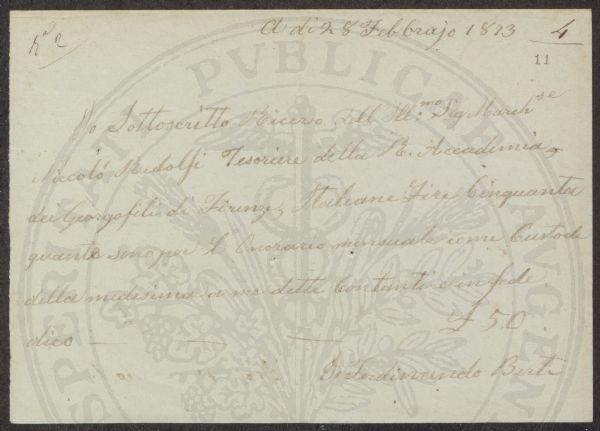 A dì 28 Febbrajo 1873 4
N° 2
11
Io Sottoscritto Ricevo dall Ill:mo Sig March:se
Niccolò Ridolfi Tesoriere della R. Accademia
dei Georgofili di Firenze, Italiane Lire Cinquanta
quante sono per l'Onorario mensuale come Custode
della medesima a me dette Contanti e in fede
dico — — — £ 50
Io Ferdinando Berti
PVBLICAE
PROSPERITATI
AVGENDAE